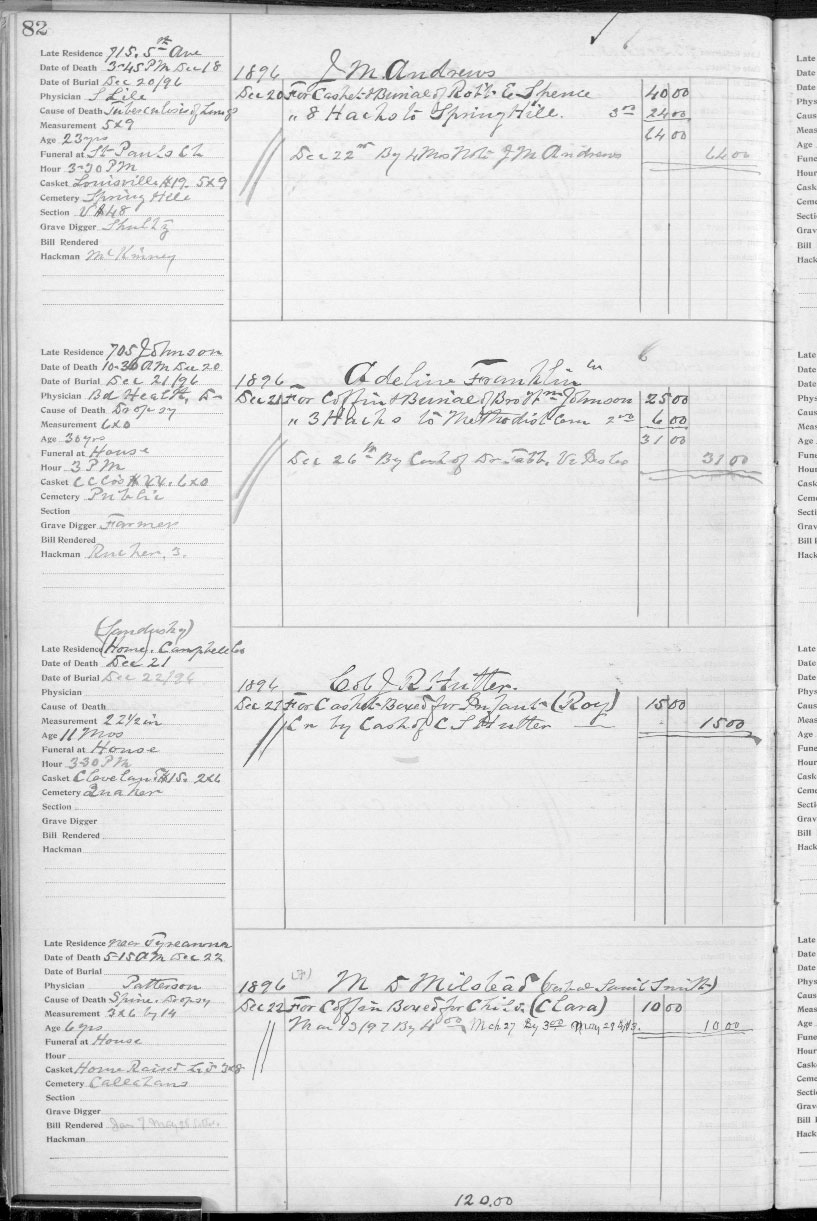 82
Late Residence 715. 5th Ave
Date of Death 3-45 PM Dec 18
Date of Burial Dec 20/96
Physician S Lile
Cause of Death Tuberculosis of Lungs
Measurement 5x9
Age 23 yrs
Funeral at St Pauls Ch
Hour 3-30 PM
Casket Louisville #19. 5x9
Cemetery Spring Hill
Section V # 48
Grave Digger Shultz
Bill Rendered
Hackman McKinney
1896 J. M. Andrews
Dec 20 For Casket & Burial of Robt. E. Spence 40 00
" 8 Hacks to Spring Hill. 3 00 24 00
64 00
Dec 22nd By 4 Mos Note J M Andrews 64 00
Late Residence 705 Johnson
Date of Death 10-30 AM Dec 20
Date of Burial Dec 21/96
Physician Bd Health,
Cause of Death Dropsy
Measurement 6x0
Age 30 yrs
Funeral at House
Hour 3 PM
Casket CCCos # 44. 6x0
Cemetery Public
Section
Grave Digger Farmer
Bill Rendered
Hackman Rucker, 3.
1896 Adeline Franklin
Dec 21 For Coffin & Burial of Johnson 25 00
" 3 Hacks to Methodist Cem 2 00 6 00
31 00
Dec 26th By Cash of Dr Tabb, 31 00
(Sandusky)
Late Residence (Home). Campbell Co
Date of Death Dec 21
Date of Burial Dec 22/96
Physician
Cause of Death
Measurement 22 1/2 in
Age 11 Mos
Funeral at House
Hour 3-30 PM
Casket Cleveland #15. 2x6
Cemetery Quaker
Section
Grave Digger
Bill Rendered
Hackman
1896 Col J. R. Hutter.
Dec 22 For Casket Boxed for Infant (Roy) 15 00
Cr by Cash of C S Hutter 15 00
Late Residence near Tyreanna
Date of Death 5-15 AM Dec 22
Date of Burial
Physician Patterson
Cause of Death Spine, Dropsy
Measurement 3x6 by 14
Age 6 yrs
Funeral at House
Hour
Casket Home Raised Lid 3x8
Cemetery Callahans
Section
Grave Digger
Bill Rendered Jan 7
Hackman
1896 M D Milstead Saml Smith)
Dec 22 For Coffin Boxed for Child. (Clara) 10 00
Mar 13/97 By 4 00 Mch 27 By 3 00 May 29 10 00
120.00